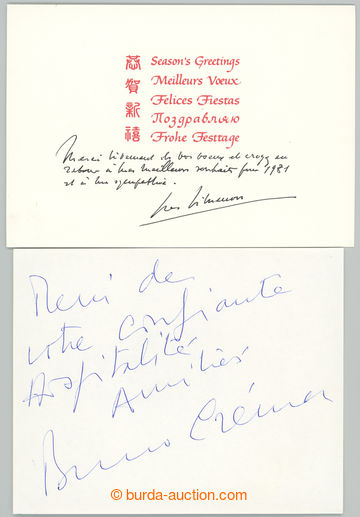 恭賀新禧
Season's Greetings
Meilleurs Vœux
Felices Fiestas
Поздравляю
Frohe Festtage
Merci vivement de vos voeux et croyez en
retour à mes meilleurs souhaits pour 1981
et à ma sympathie.
Merci de
votre confiante
Hospitalité
Amitiés
Bruno Crémer
burda-auction.com